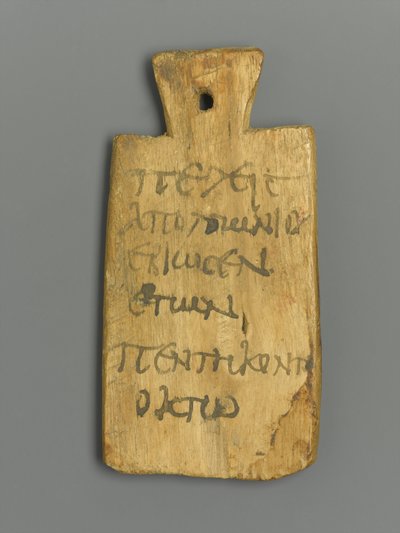 ΑΠΟΛΛΩΝΙΟΥ
ΕΒΙΩϹΕΝ
ΕΤΩΝ
ΠΕΝΤΗΚΟΝΤ
ΟΚΤΩ